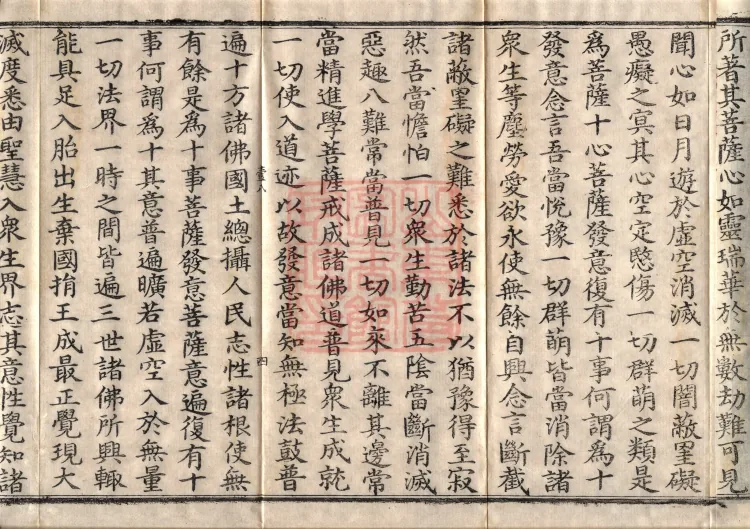 所著其菩薩心如靈瑞華於無數劫難可見
聞心如日月遊於虛空消滅一切闇蔽罣礙
愚癡之冥其心空定愍傷一切群萌之類是
為菩薩十心菩薩發意復有十事何謂為十
發意念言吾當悅豫一切群萌皆當消除諸
衆生等塵勞愛欲永使無餘自興念言斷截
諸蔽罣礙之難悉於諸法不以猶豫得至寂
然吾當憺怕一切衆生勤苦五陰當斷消滅
惡趣八難常當普見一切如來不離其邊常
當精進學菩薩戒成諸佛道普見衆生成就
一切使入道迹以故發意當知無極法鼓普
四
遍十方諸佛國土總攝人民志性諸根使無
有餘是為十事菩薩發意菩薩意遍復有十
事何謂為十其意普遍曠若虛空入於無量
一切法界一時之間皆遍三世諸佛所興輙
能具足入胎出生棄國捐王成最正覺現大
滅度悉由聖慧入衆生界志其意性覺知諸